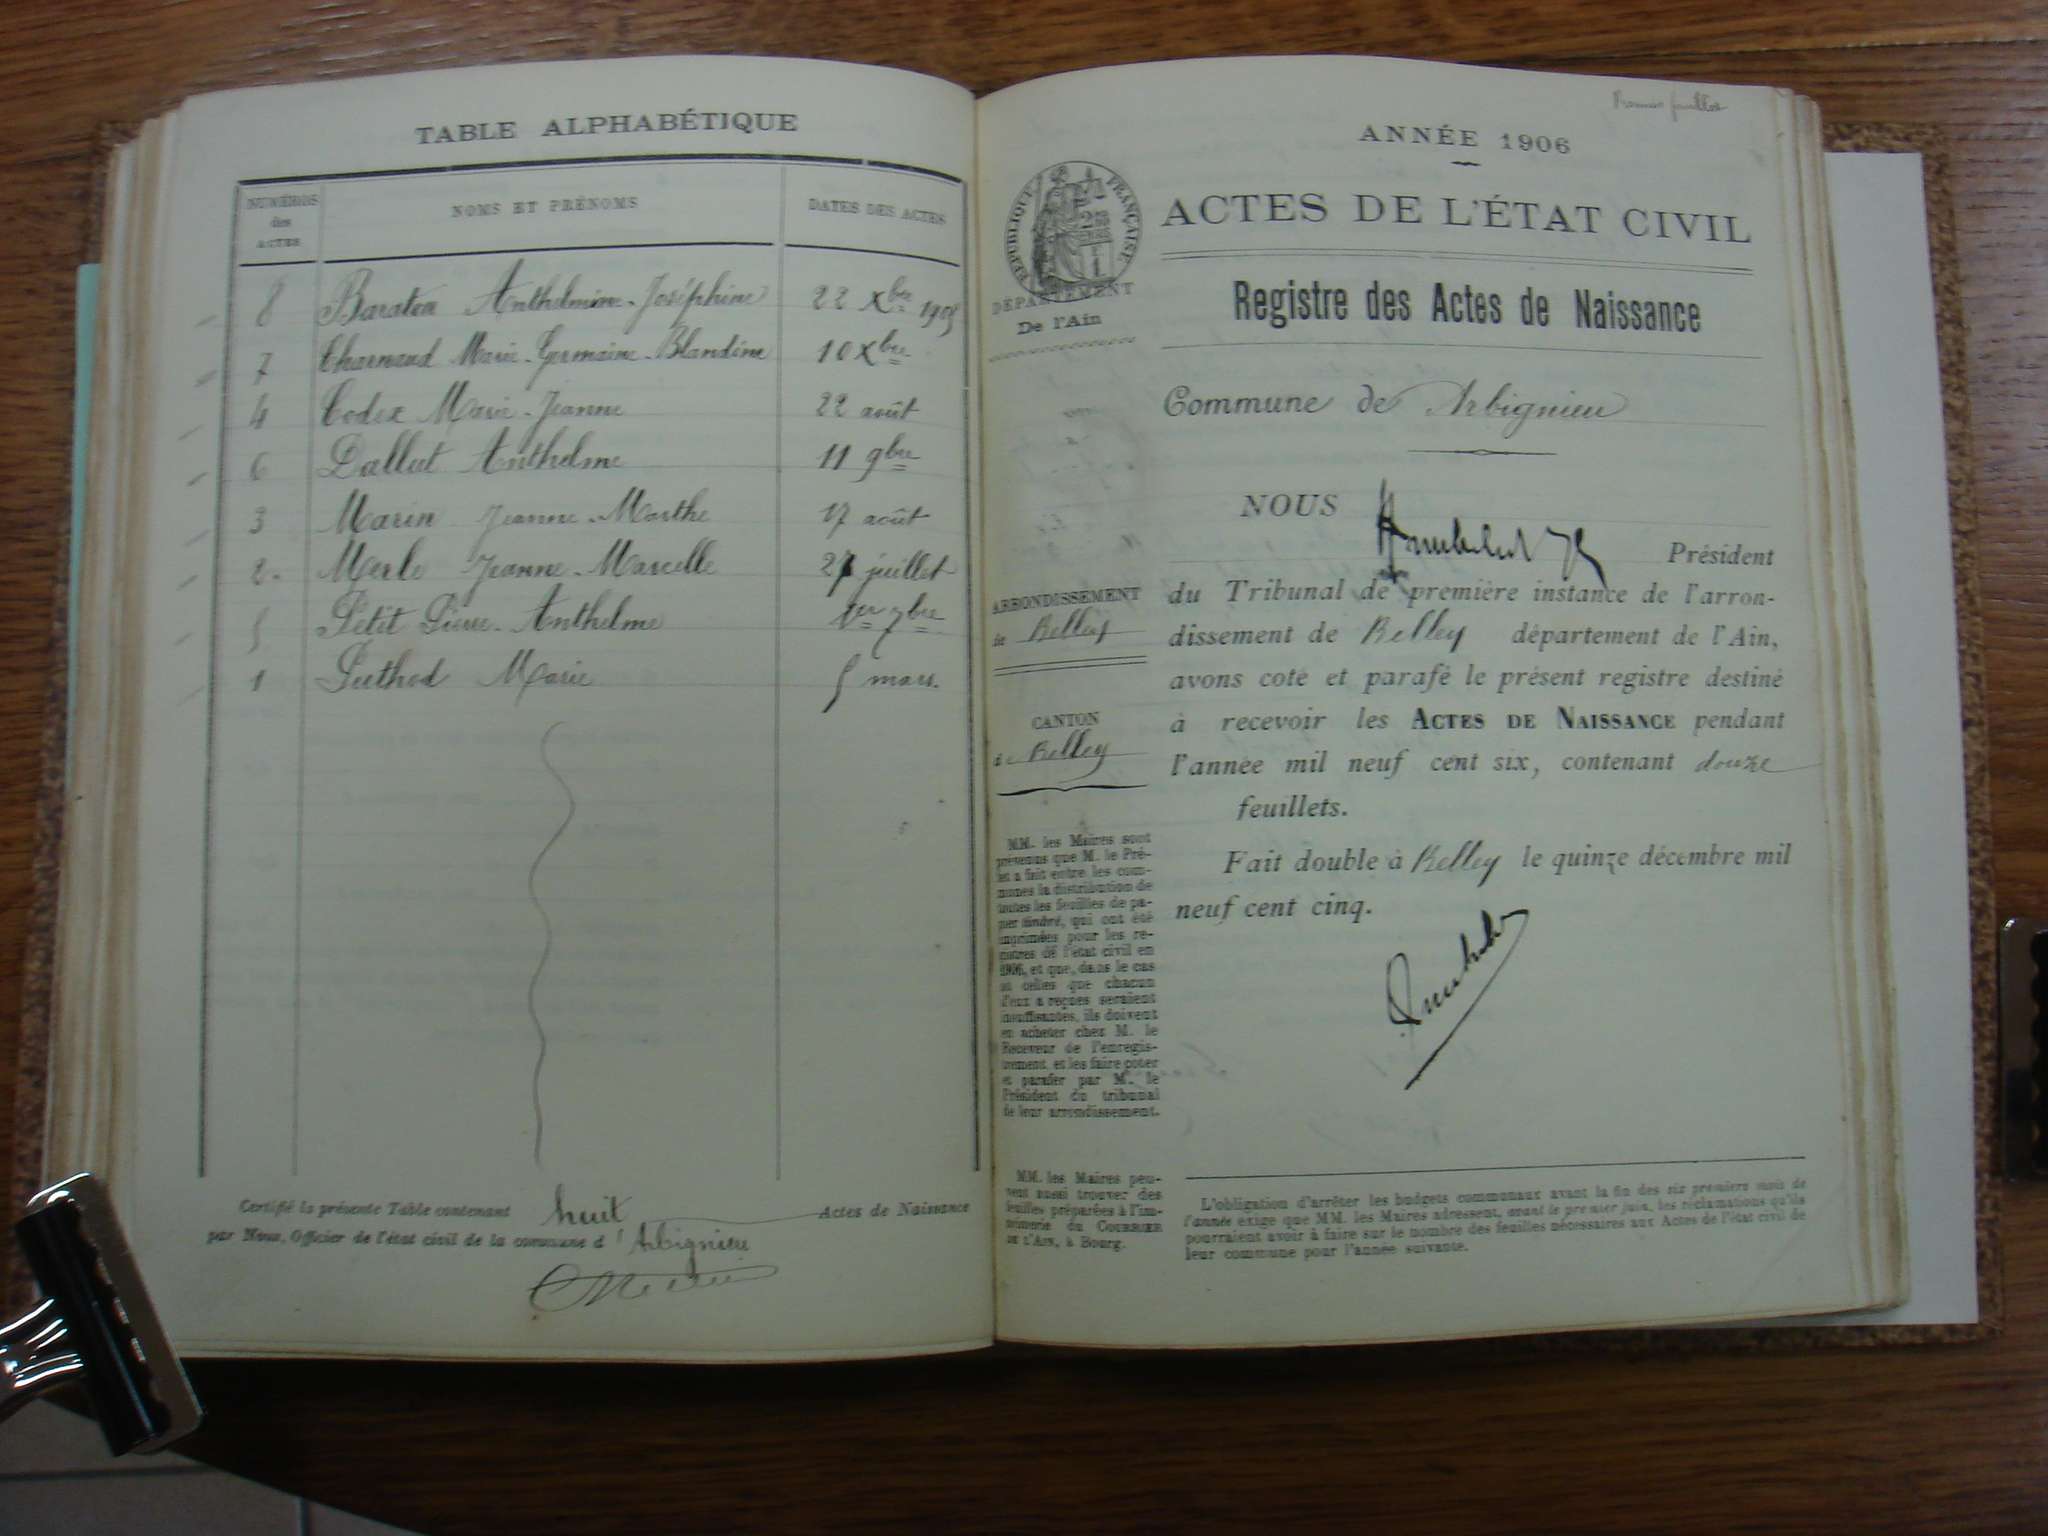 TABLE ALPHABÉTIQUE
NUMÉROS des ACTES
NOMS ET PRÉNOMS
DATES DES ACTES
8 Baraten Anthelmine-Joséphine 22 Xbre 1905
7 Charnaud Marie-Germaine-Blandine 10 Xbre
4 Codex Marie-Jeanne 22 août
6 Dallut Anthelme 11 9bre
3 Marin Jeanne-Marthe 17 août
2 Merle Jeanne-Marcelle 27 juillet
5 Petit Pierre-Anthelme 1er 7bre
1 Puthod Marie 5 mars
Certifié la présente Table contenant huit Actes de Naissance
par Nous, Officier de l'état civil de la commune d'Arbignieu
Premier feuillet
ANNÉE 1906
RÉPUBLIQUE FRANÇAISE
ACTES DE L'ÉTAT CIVIL
DÉPARTEMENT
De l'Ain
Registre des Actes de Naissance
Commune de Arbignieu
NOUS
Président
du Tribunal de première instance de l'arron-
dissement de Belley département de l'Ain,
avons coté et parafé le présent registre destiné
à recevoir les ACTES DE NAISSANCE pendant
l'année mil neuf cent six, contenant douze
feuillets.
Fait double à Belley le quinze décembre mil
neuf cent cinq.
ARRONDISSEMENT
de Belley
CANTON
de Belley
MM. les Maires sont
prévenus que M. le Pré-
fet a fait entre les com-
munes la distribution de
toutes les feuilles de pa-
pier timbré, qui ont été
imprimées pour les re-
gistres de l'état civil en
1906, et que, dans le cas
où celles que chacun
d'eux a reçues seraient
insuffisantes, ils doivent
en acheter chez M. le
Receveur de l'enregis-
trement, et les faire coter
et parafer par M. le
Président du tribunal
de leur arrondissement.
MM. les Maires peu-
vent aussi trouver des
feuilles préparées à l'im-
primerie du COURRIER
DE L'AIN, à Bourg.
L'obligation d'arrêter les budgets communaux avant la fin des six premiers mois de
l'année exige que MM. les Maires adressent, avant le premier juin, les réclamations qu'ils
pourraient avoir à faire sur le nombre des feuilles nécessaires aux Actes de l'état civil de
leur commune pour l'année suivante.